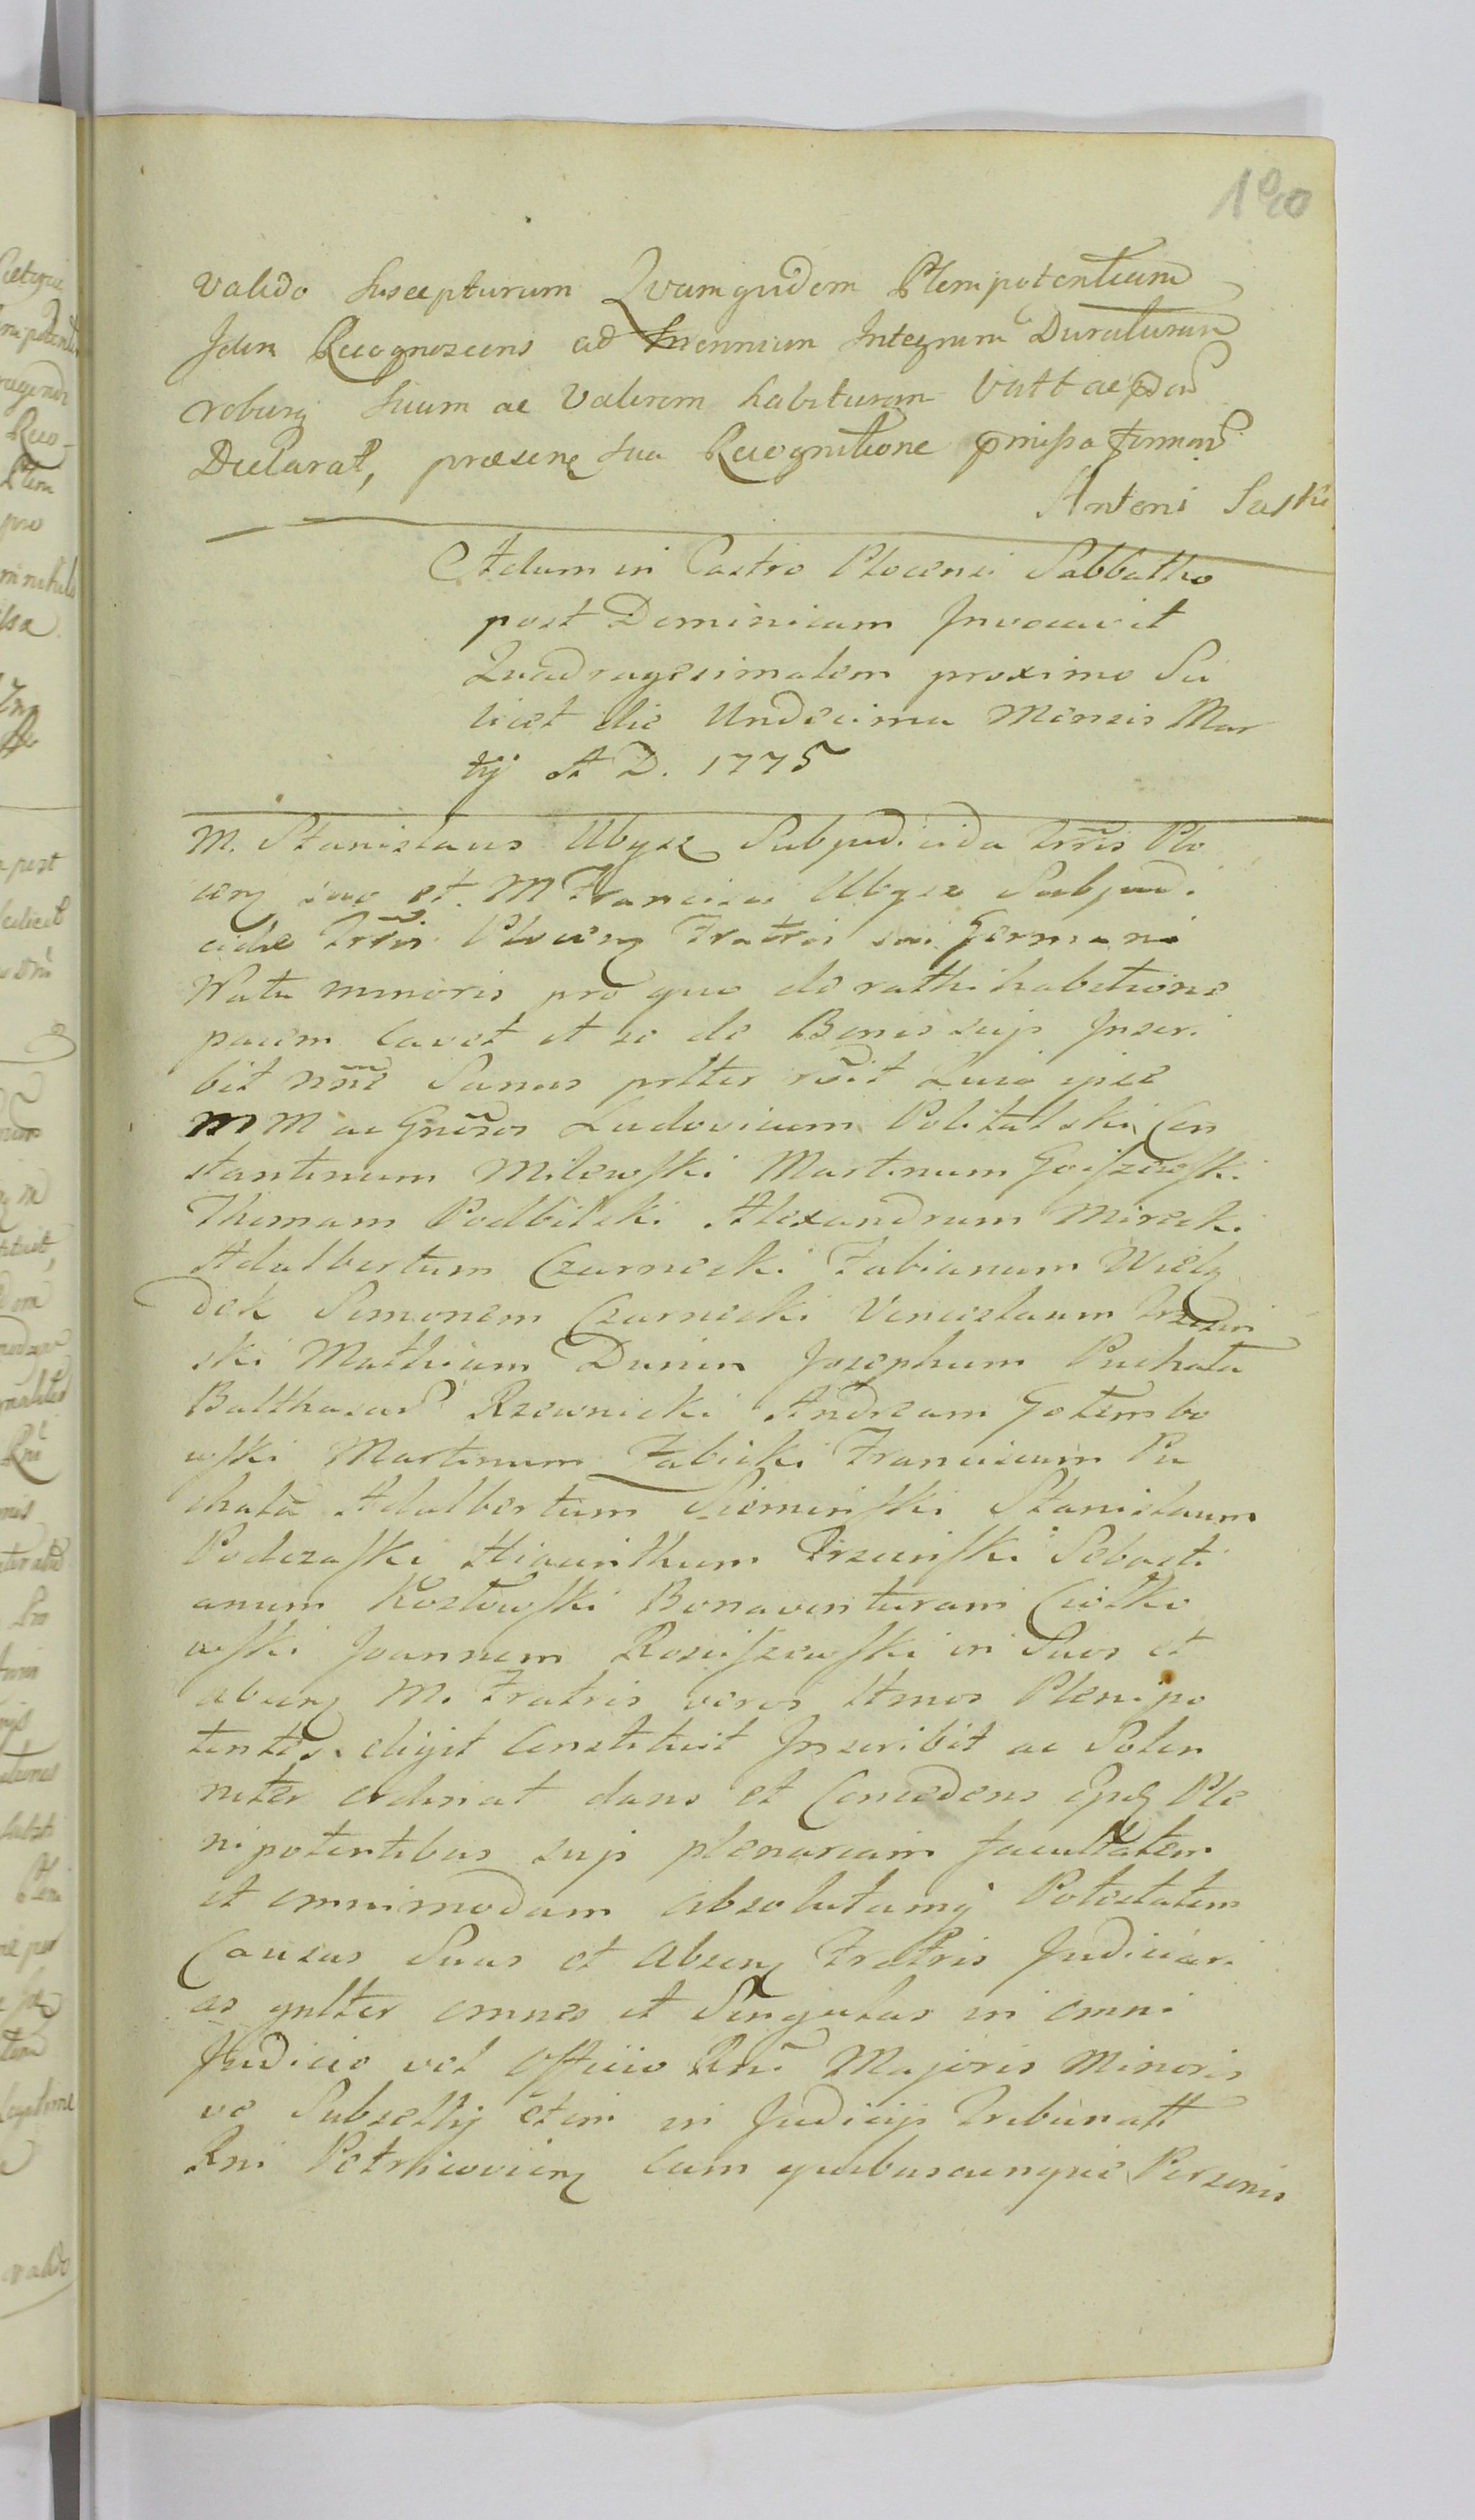 100
valido suscepturum Quamquidem Plenipotentiam
Idem Recognoscens ad Triennium Integrum Duraturam
roburq suum ac Valorem habituram Vult ac
Declarat, præsenq sua Recognitione pmissa
Antoni Saski
Actum in Castro Plocensi Sabbatho
post Dominicam Invocavit
Quadragesimalem proximo Sci
licet die Undecima Mensis Mar
tij A D. 1775
M. Stanislaus Ubysz Subjudicida Trris Plo
cenq suo et M Francisci Ubysz Subjudi
cidæ Trris Plocenq Fratris sui Germani
Natu minoris pro quo de rathihabitione
pacem Cavet et se de Bonis suis Inscri
bit nne Sanus pltter rvit Quia ipse
MM ac Gnsos Ludovicum Politalski Con
stantinum Milewski Martinum Goiszewski
Thomam Podbilski Alexandrum Mirecki
Adalbertum Czarnecki Fabianum Wielg
dek Simonem Czarnecki Venceslaum
ski Mathiam Dunin Josephum Puchata
Balthasar Rzewnicki Andream Gotembo
wski Martinum Zabicki Franciscum Pu
chata Adalbertum Sieminski Stanislaum
Podczaski Hiacinthum Trzcinski Sebasti
anum Kozlowski Bonaventuram Ciolko
wski Joannem Rosciszewski in Suos et
absenq M. Fratris veros ltmos Plenipo
tentes eligit Constituit Inscribit ac Solen
niter ordinat dans et Concedens ipsis Ple
nipotentibus suis plenariam facultatem
et omnimodam absolutamq Potestatem
Causas Suas et absenq Fratris Judiciari
as gnlter omnes et Singulas in omni
Judicio vel Officio Rni Majoris Minoris
ve Subsellij etim in Judicijs Tribunatt
Rni Petricovienq Cum quibuscunque Personis